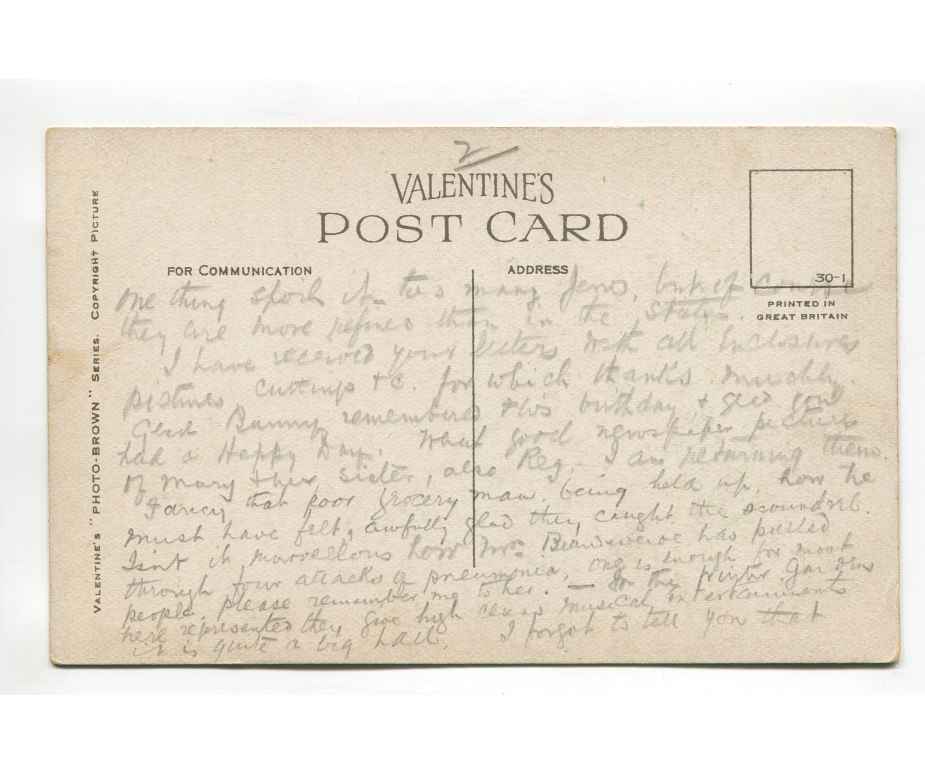 2
VALENTINE'S
POST CARD
FOR COMMUNICATION
ADDRESS
30-1
PRINTED IN
GREAT BRITAIN
VALENTINE'S "PHOTO-BROWN" SERIES. COPYRIGHT PICTURE
one thing spoils it, too many Jews, but of course
they are more refined than in the States.
I have received your letters with all Enclosures
pictures cuttings &c. for which thanks muchly.
Glad Bunny remembered this birthday & glad you
had a Happy Day. What good newspaper pictures
of Mary & her sister, also Reg. I am returning them.
Fancy that poor grocery man being held up, how he
must have felt, awfully glad they caught the scoundrel.
Isn't it marvellous how Mrs has pulled
through four attacks of pneumonia, one is enough for most
people. please remember me to her. — In the Winter Gardens
here represented they give high class musical Entertainments
it is quite a big hall. I forgot to tell you that